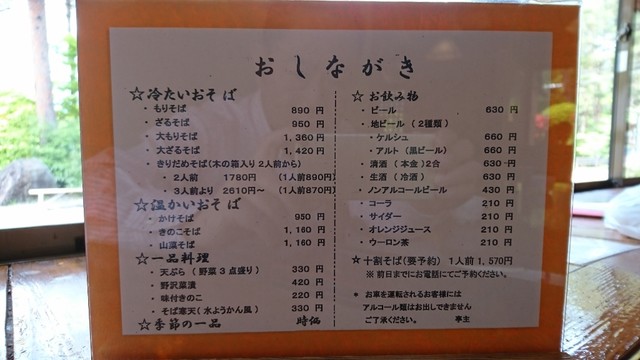 おしながき
☆冷たいおそば
・もりそば 890 円
・ざるそば 950 円
・大もりそば 1,360 円
・大ざるそば 1,420 円
・きりだめそば(木の箱入り2人前から)
・2人前 1780円 (1人前890円)
・3人前より 2610円~ (1人前870円)
☆温かいおそば
・かけそば 950 円
・きのこそば 1,160 円
・山菜そば 1,160 円
☆一品料理
・天ぷら(野菜3点盛り) 330 円
・野沢菜漬 420 円
・味付きのこ 220 円
・そば寒天(水ようかん風) 330 円
☆季節の一品 時価
☆お飲み物
・ビール 630 円
・地ビール(2種類)
・ケルシュ 660 円
・アルト(黒ビール) 660 円
・清酒(本金)2合 630 円
・生酒(冷酒) 630 円
・ノンアルコールビール 430 円
・コーラ 210 円
・サイダー 210 円
・オレンジジュース 210 円
・ウーロン茶 210 円
☆十割そば(要予約) 1人前1,570円
※前日までにお電話にてご予約ください。
* お車を運転されるお客様には
アルコール類はお出しできません
ご了承ください。 亭主